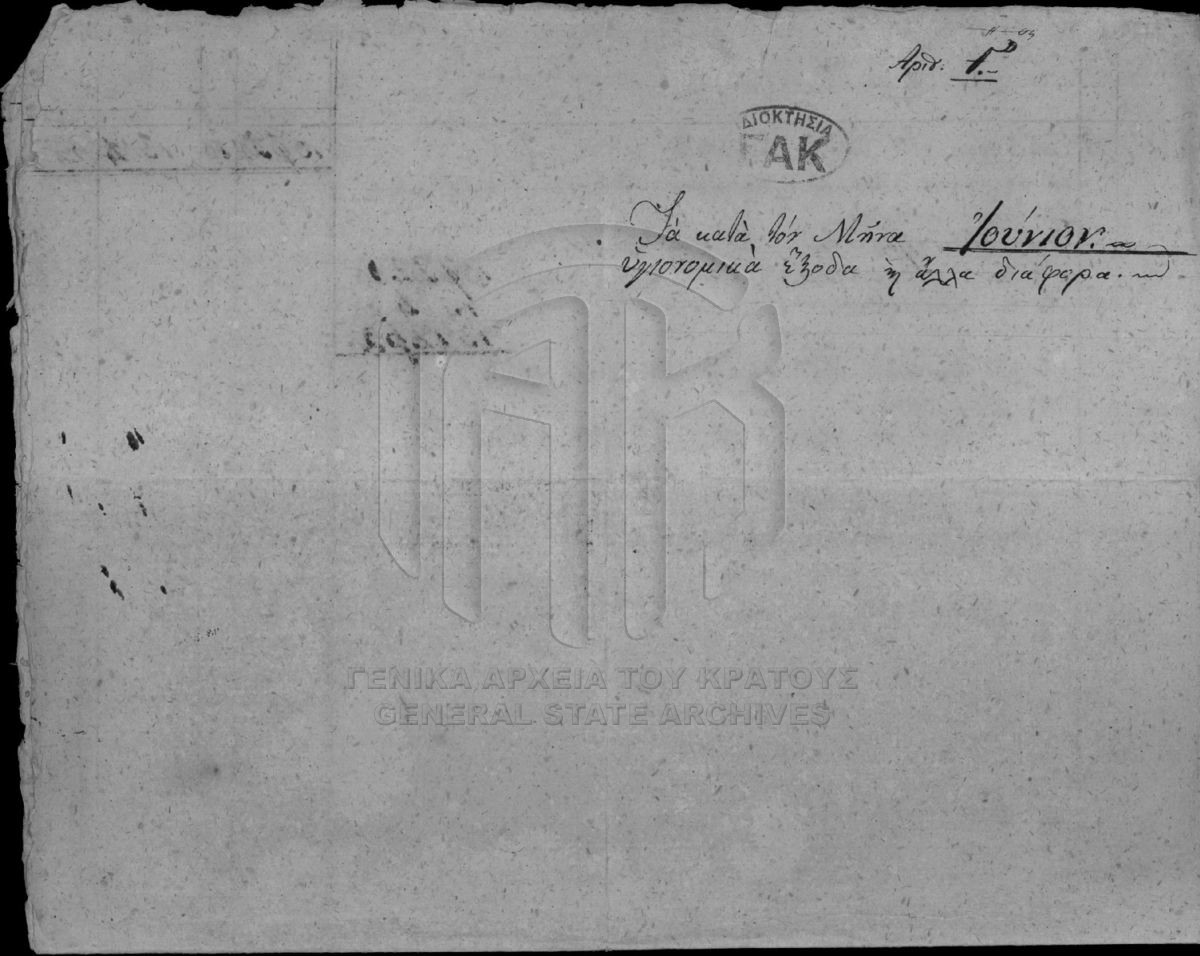 Αριθ. 1.
ΔΙΟΚΤΗΣΙΑ
ΓΑΚ
Τά κατὰ τόν Μῆνα Ἰούνιον.
ὑγιονομικὰ ἔξοδα ἢ ἄλλα διάφορα.
ΓΕΝΙΚΑ ΑΡΧΕΙΑ ΤΟΥ ΚΡΑΤΟΥΣ
GENERAL STATE ARCHIVES